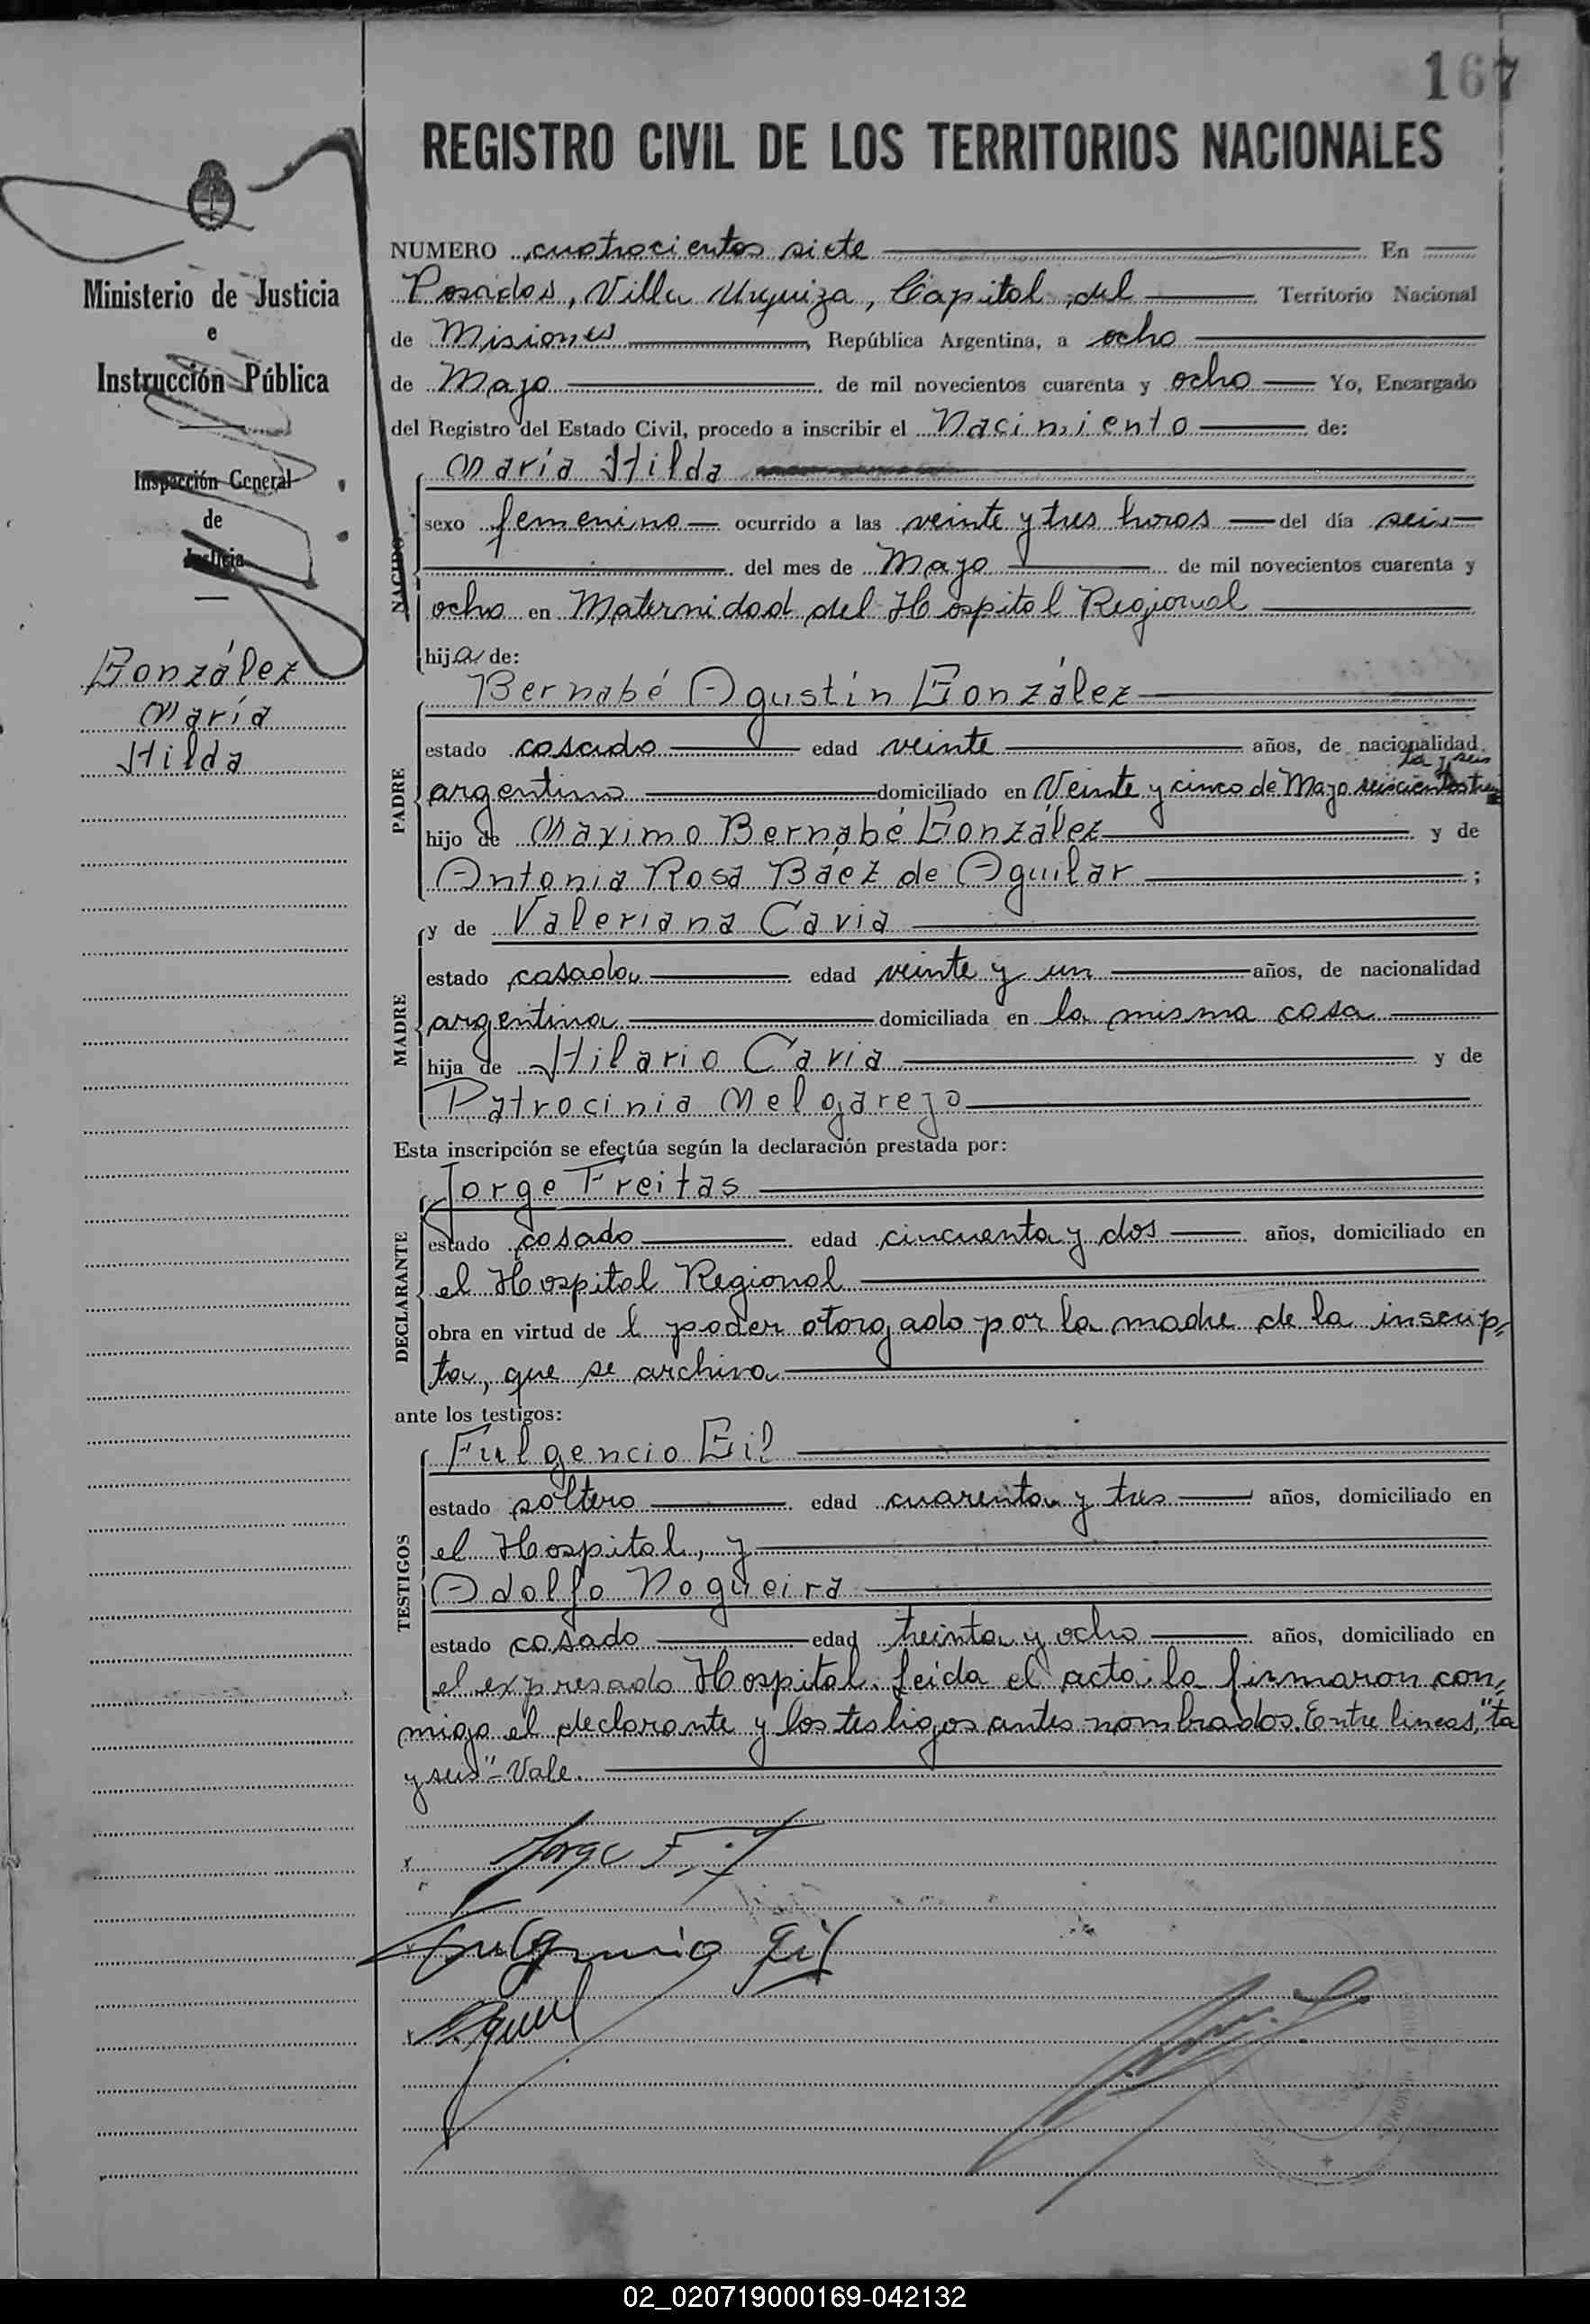 167
REGISTRO CIVIL DE LOS TERRITORIOS NACIONALES
Ministerio de Justicia
e
Instrucción Pública
Inspección General
de
Justicia
González
María
Hilda
NUMERO cuatrocientos siete En
Posadas, Villa Urquiza, Capital del Territorio Nacional
de Misiones, República Argentina, a ocho
de Mayo de mil novecientos cuarenta y ocho Yo, Encargado
del Registro del Estado Civil, procedo a inscribir el Nacimiento de:
NACIDO
María Hilda
sexo femenino ocurrido a las veinte y tres horas del día seis
del mes de Mayo de mil novecientos cuarenta y
ocho en Maternidad del Hospital Regional
hija de:
PADRE
Bernabé Agustín González
estado casado edad veinte años, de nacionalidad
ta y seis
argentino domiciliado en Veinte y cinco de Mayo seiscientos trein
hijo de Maximo Bernabé González y de
Antonia Rosa Báez de Aguilar ;
MADRE
y de Valeriana Cavia
estado casada edad veinte y un años, de nacionalidad
argentina domiciliada en la misma casa
hija de Hilario Cavia y de
Patrocinia Melgarejo
Esta inscripción se efectúa según la declaración prestada por:
DECLARANTE
Jorge Freitas
estado casado edad cincuenta y dos años, domiciliado en
el Hospital Regional
obra en virtud de l poder otorgado por la madre de la inscrip-
ta, que se archiva
ante los testigos:
TESTIGOS
Fulgencio Gil
estado soltero edad cuarenta y tres años, domiciliado en
el Hospital, y
Adolfo Nogueira
estado casado edad treinta y ocho años, domiciliado en
el expresado Hospital. Leída el acta la firmaron con-
migo el declarante y los testigos antes nombrados. Entre lineas, "ta
y seis" - Vale.
Jorge
Fulgencio Gil
02_020719000169-042132